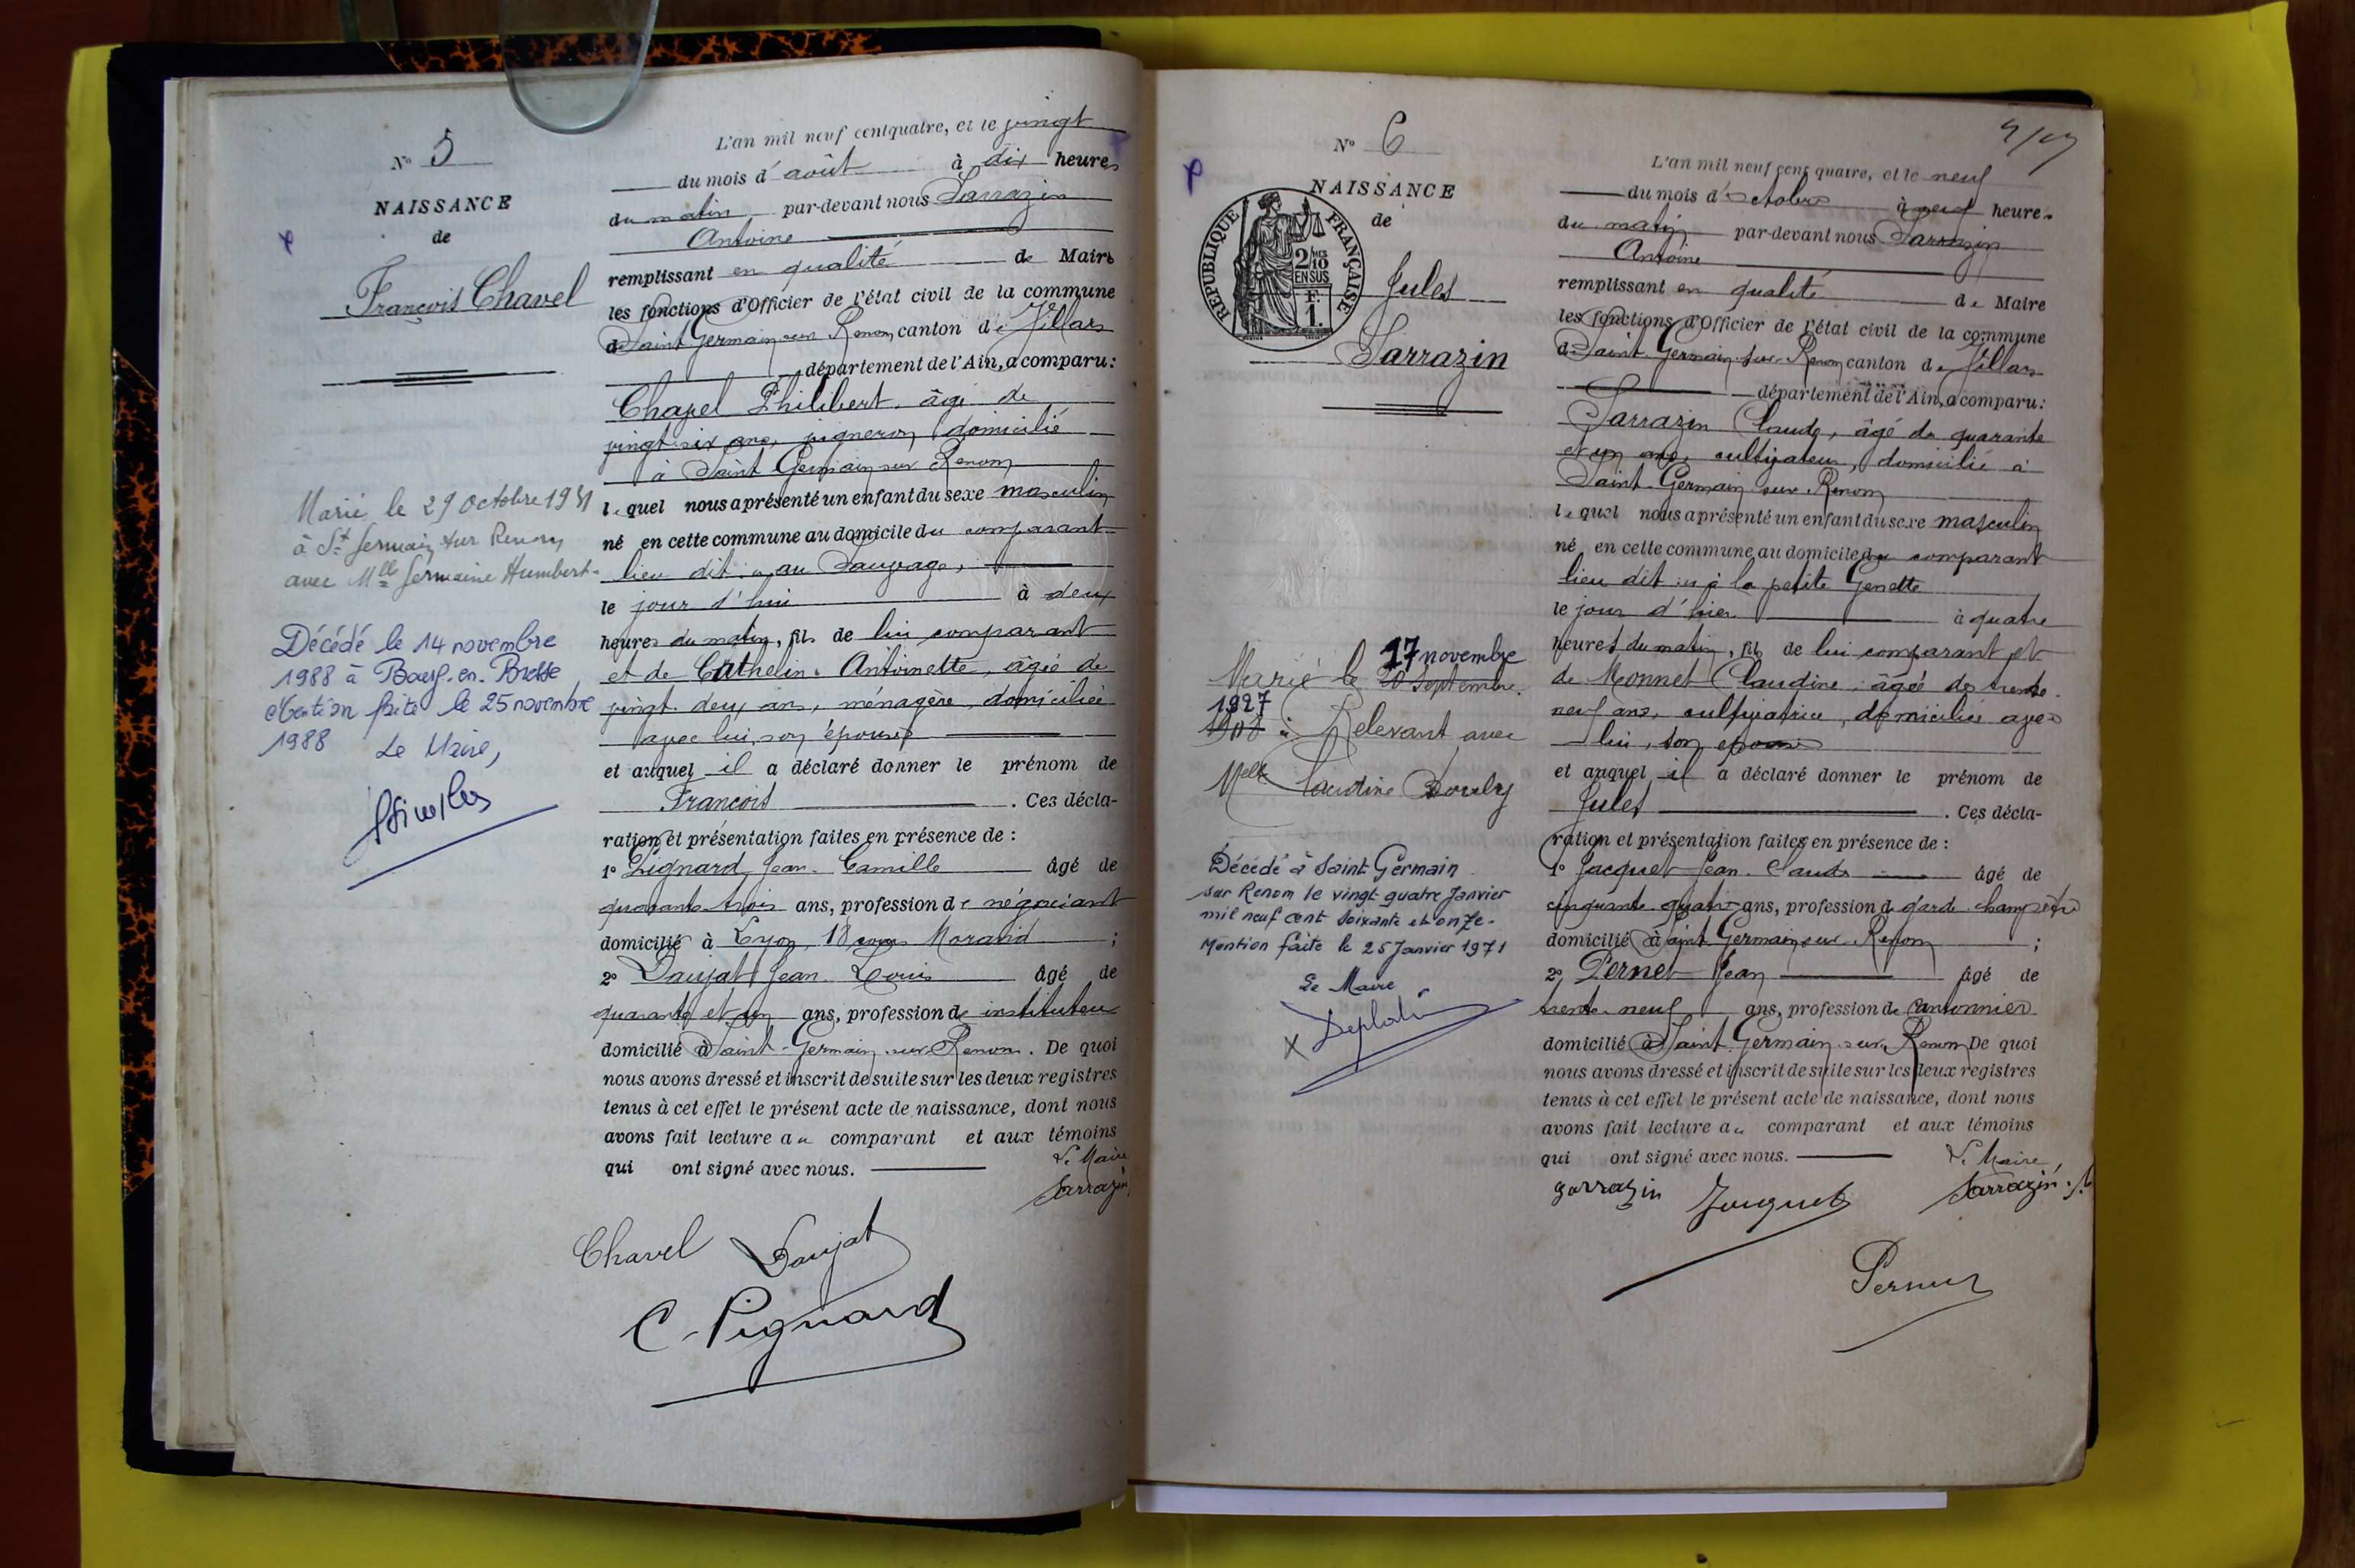 N° 5
NAISSANCE
de
François Chavel
Marié le 29 Octobre 1931
à St Germain sur Renom
avec Mlle Germaine Humbert
Décédé le 14 novembre
1988 à Bourg-en-Bresse
Mention faite le 25 novembre
1988 Le Maire,
L'an mil neuf cent quatre, et le vingt
du mois d'août à dix heures
du matin par-devant nous Sarrazin
Antoine
remplissant en qualité de Maire
les fonctions d'Officier de l'état civil de la commune
de Saint Germain sur Renom, canton de Villars
département de l'Ain, a comparu:
Chavel Philibert, âgé de
vingt-six ans, vigneron, domicilié
à Saint Germain sur Renom
lequel nous a présenté un enfant du sexe masculin
né en cette commune au domicile du comparant
lieu dit: « au Sauvage,
le jour d'hui à deux
heures du matin, fils de lui comparant
et de Cathelin Antoinette, âgée de
vingt-deux ans, ménagère, domiciliée
avec lui, son épouse
et auquel il a déclaré donner le prénom de
François. Ces décla-
ration et présentation faites en présence de:
1° Pignard Jean-Camille âgé de
quarante-trois ans, profession de négociant
domicilié à Lyon, 18 cours Morand;
2° Daujat Jean-Louis âgé de
quarante et un ans, profession de instituteur
domicilié à Saint-Germain-sur-Renom. De quoi
nous avons dressé et inscrit de suite sur les deux registres
tenus à cet effet le présent acte de naissance, dont nous
avons fait lecture au comparant et aux témoins
qui ont signé avec nous.
Le Maire
Sarrazin
Chavel Daujat
C. Pignard
N° 6
NAISSANCE
de
REPUBLIQUE FRANÇAISE
2/10 EN SUS
F. 1
Jules
Sarrazin
17 novembre
Marié le 10 Septembre
1927
1908 à Relevant avec
Melle Claudine Bouly
Décédé à Saint Germain
sur Renom le vingt-quatre Janvier
mil neuf cent soixante et onze-
Mention faite le 25 Janvier 1971
Le Maire
L'an mil neuf cent quatre, et le neuf
du mois d'octobre à neuf heures
du matin par-devant nous Sarrazin
Antoine
remplissant en qualité de Maire
les fonctions d'Officier de l'état civil de la commune
de Saint-Germain-sur-Renom canton de Villars
département de l'Ain, a comparu:
Sarrazin Claude, âgé de quarante
et un ans, cultivateur, domicilié à
Saint-Germain sur Renom
lequel nous a présenté un enfant du sexe masculin
né en cette commune au domicile du comparant
lieu dit: « à la petite Genette
le jour d'hier à quatre
heures du matin, fils de lui comparant et
de Monnet Claudine, âgée de trente-
neuf ans, cultivatrice, domiciliée avec
lui, son épouse
et auquel il a déclaré donner le prénom de
Jules. Ces décla-
ration et présentation faites en présence de:
1° Jacquet Jean-Claude âgé de
cinquante-quatre ans, profession de garde-champêtre
domicilié à Saint Germain-sur-Renom;
2° Pernet Jean âgé de
trente-neuf ans, profession de cantonnier
domicilié à Saint Germain-sur-Renom De quoi
nous avons dressé et inscrit de suite sur les deux registres
tenus à cet effet le présent acte de naissance, dont nous
avons fait lecture au comparant et aux témoins
qui ont signé avec nous.
Le Maire,
Sarrazin Jacquet Sarrazin
Pernet